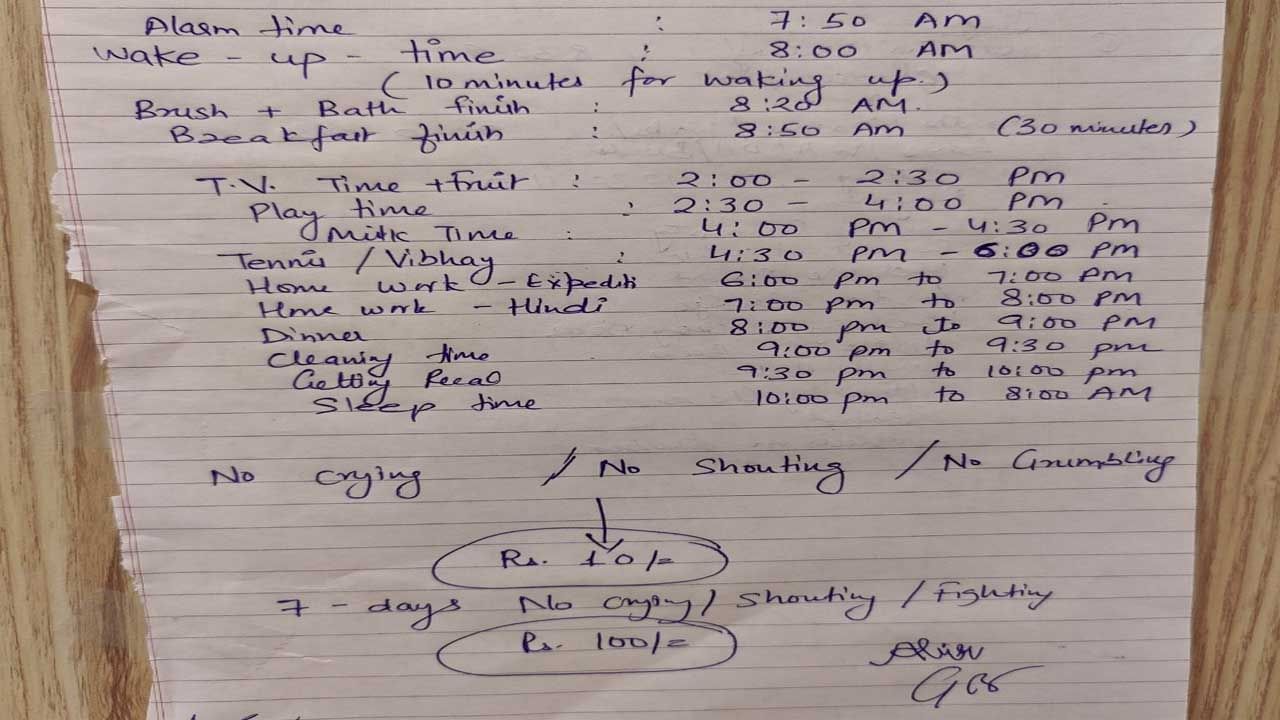 Alarm time : 7:50 AM
Wake - up - time : 8:00 AM
(10 minutes for waking up.)
Brush + Bath finish : 8:20 AM.
Breakfast finish : 8:50 AM (30 minutes)
T.V. Time + Fruit : 2:00 - 2:30 PM
Play time : 2:30 - 4:00 PM
Milk Time : 4:00 PM - 4:30 PM
Tennis / Vibhav : 4:30 PM - 6:00 PM
Home work - Expediti 6:00 pm to 7:00 PM
Home work - Hindi 7:00 pm to 8:00 PM
Dinner 8:00 pm to 9:00 PM
Cleaning time 9:00 pm to 9:30 pm
Getting 9:30 pm to 10:00 pm
Sleep time 10:00 pm to 8:00 AM
No crying / No Shouting / No Grumbling
Rs. 10/=
7 - days No crying / Shouting / Fighting
Rs. 100/=